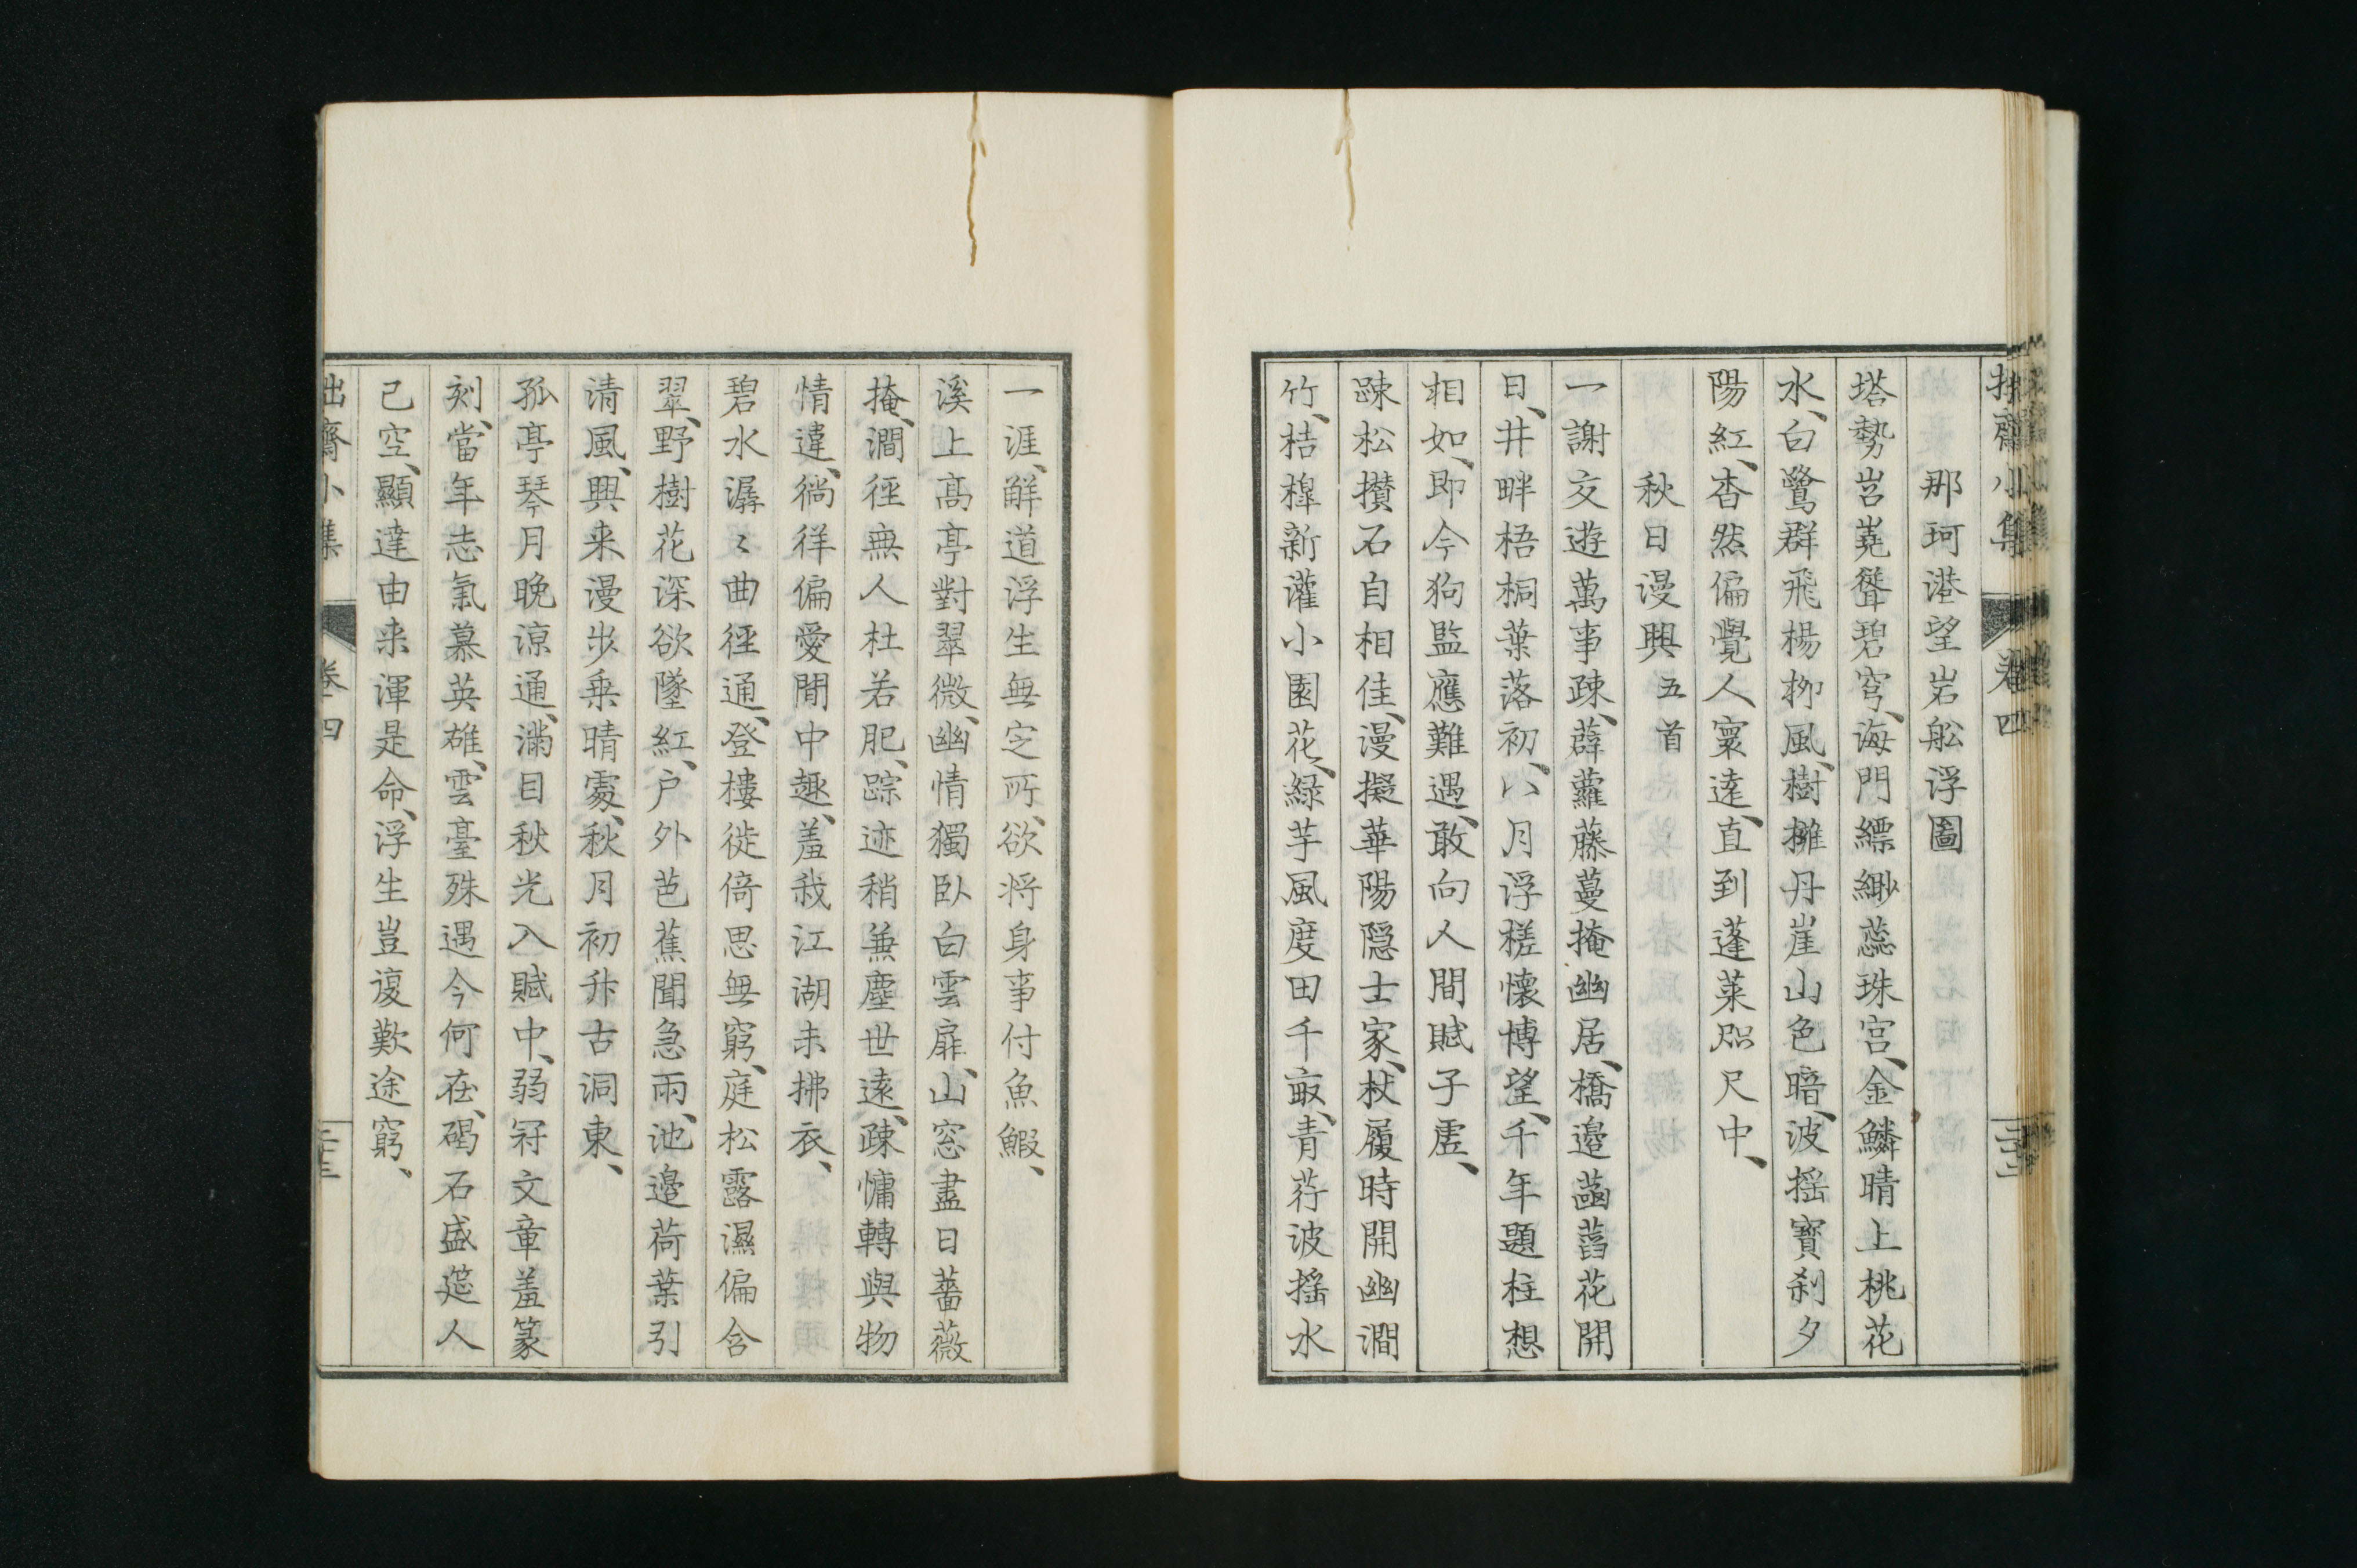 拙齋小集 卷四 二十三
那珂港望岩舩浮圖
塔勢岧嶤聳碧穹、海門縹緲蕊珠宮、金鱗晴上桃花
水、白鷺群飛楊柳風、樹擁丹崖山色暗、波揺寳刹夕
陽紅、杳然偏覺人寰遠、直到蓬萊咫尺中、
秋日漫興 五首
一謝交遊萬事踈、薜蘿藤蔓掩幽居、橋邉菡萏花開
日、井畔梧桐葉落初、八月浮槎懷博望、千年題柱想
相如、即今狗監應難遇、敢向人間賦子虛、
踈松攅石自相佳、漫擬華陽隠士家、杖履時開幽澗
竹、桔槹新灌小園花、緑芋風度田千畝、青荇波揺水
一涯、解道浮生無定所、欲将身事付魚鰕、
溪上髙亭對翠微、幽情獨臥白雲扉、山窓盡日薔薇
掩、澗徑無人杜若肥、踪迹稍兼塵世遠、踈慵轉與物
情違、徜徉偏愛閒中趣、羞我江湖未拂衣、
碧水潺〻曲徑通、登樓徙倚思無窮、庭松露濕偏含
翠、野樹花深欲墜紅、户外芭蕉聞急雨、池邉荷葉引
清風、興来漫歩乗晴處、秋月初升古洞東、
孤亭琴月晩涼通、滿目秋光入賦中、弱冠文章羞篆
刻、當年志氣慕英雄、雲臺殊遇今何在、碣石盛筵人
已空、顯達由来渾是命、浮生豈復歎途窮、
拙齋小集 卷四 二十三